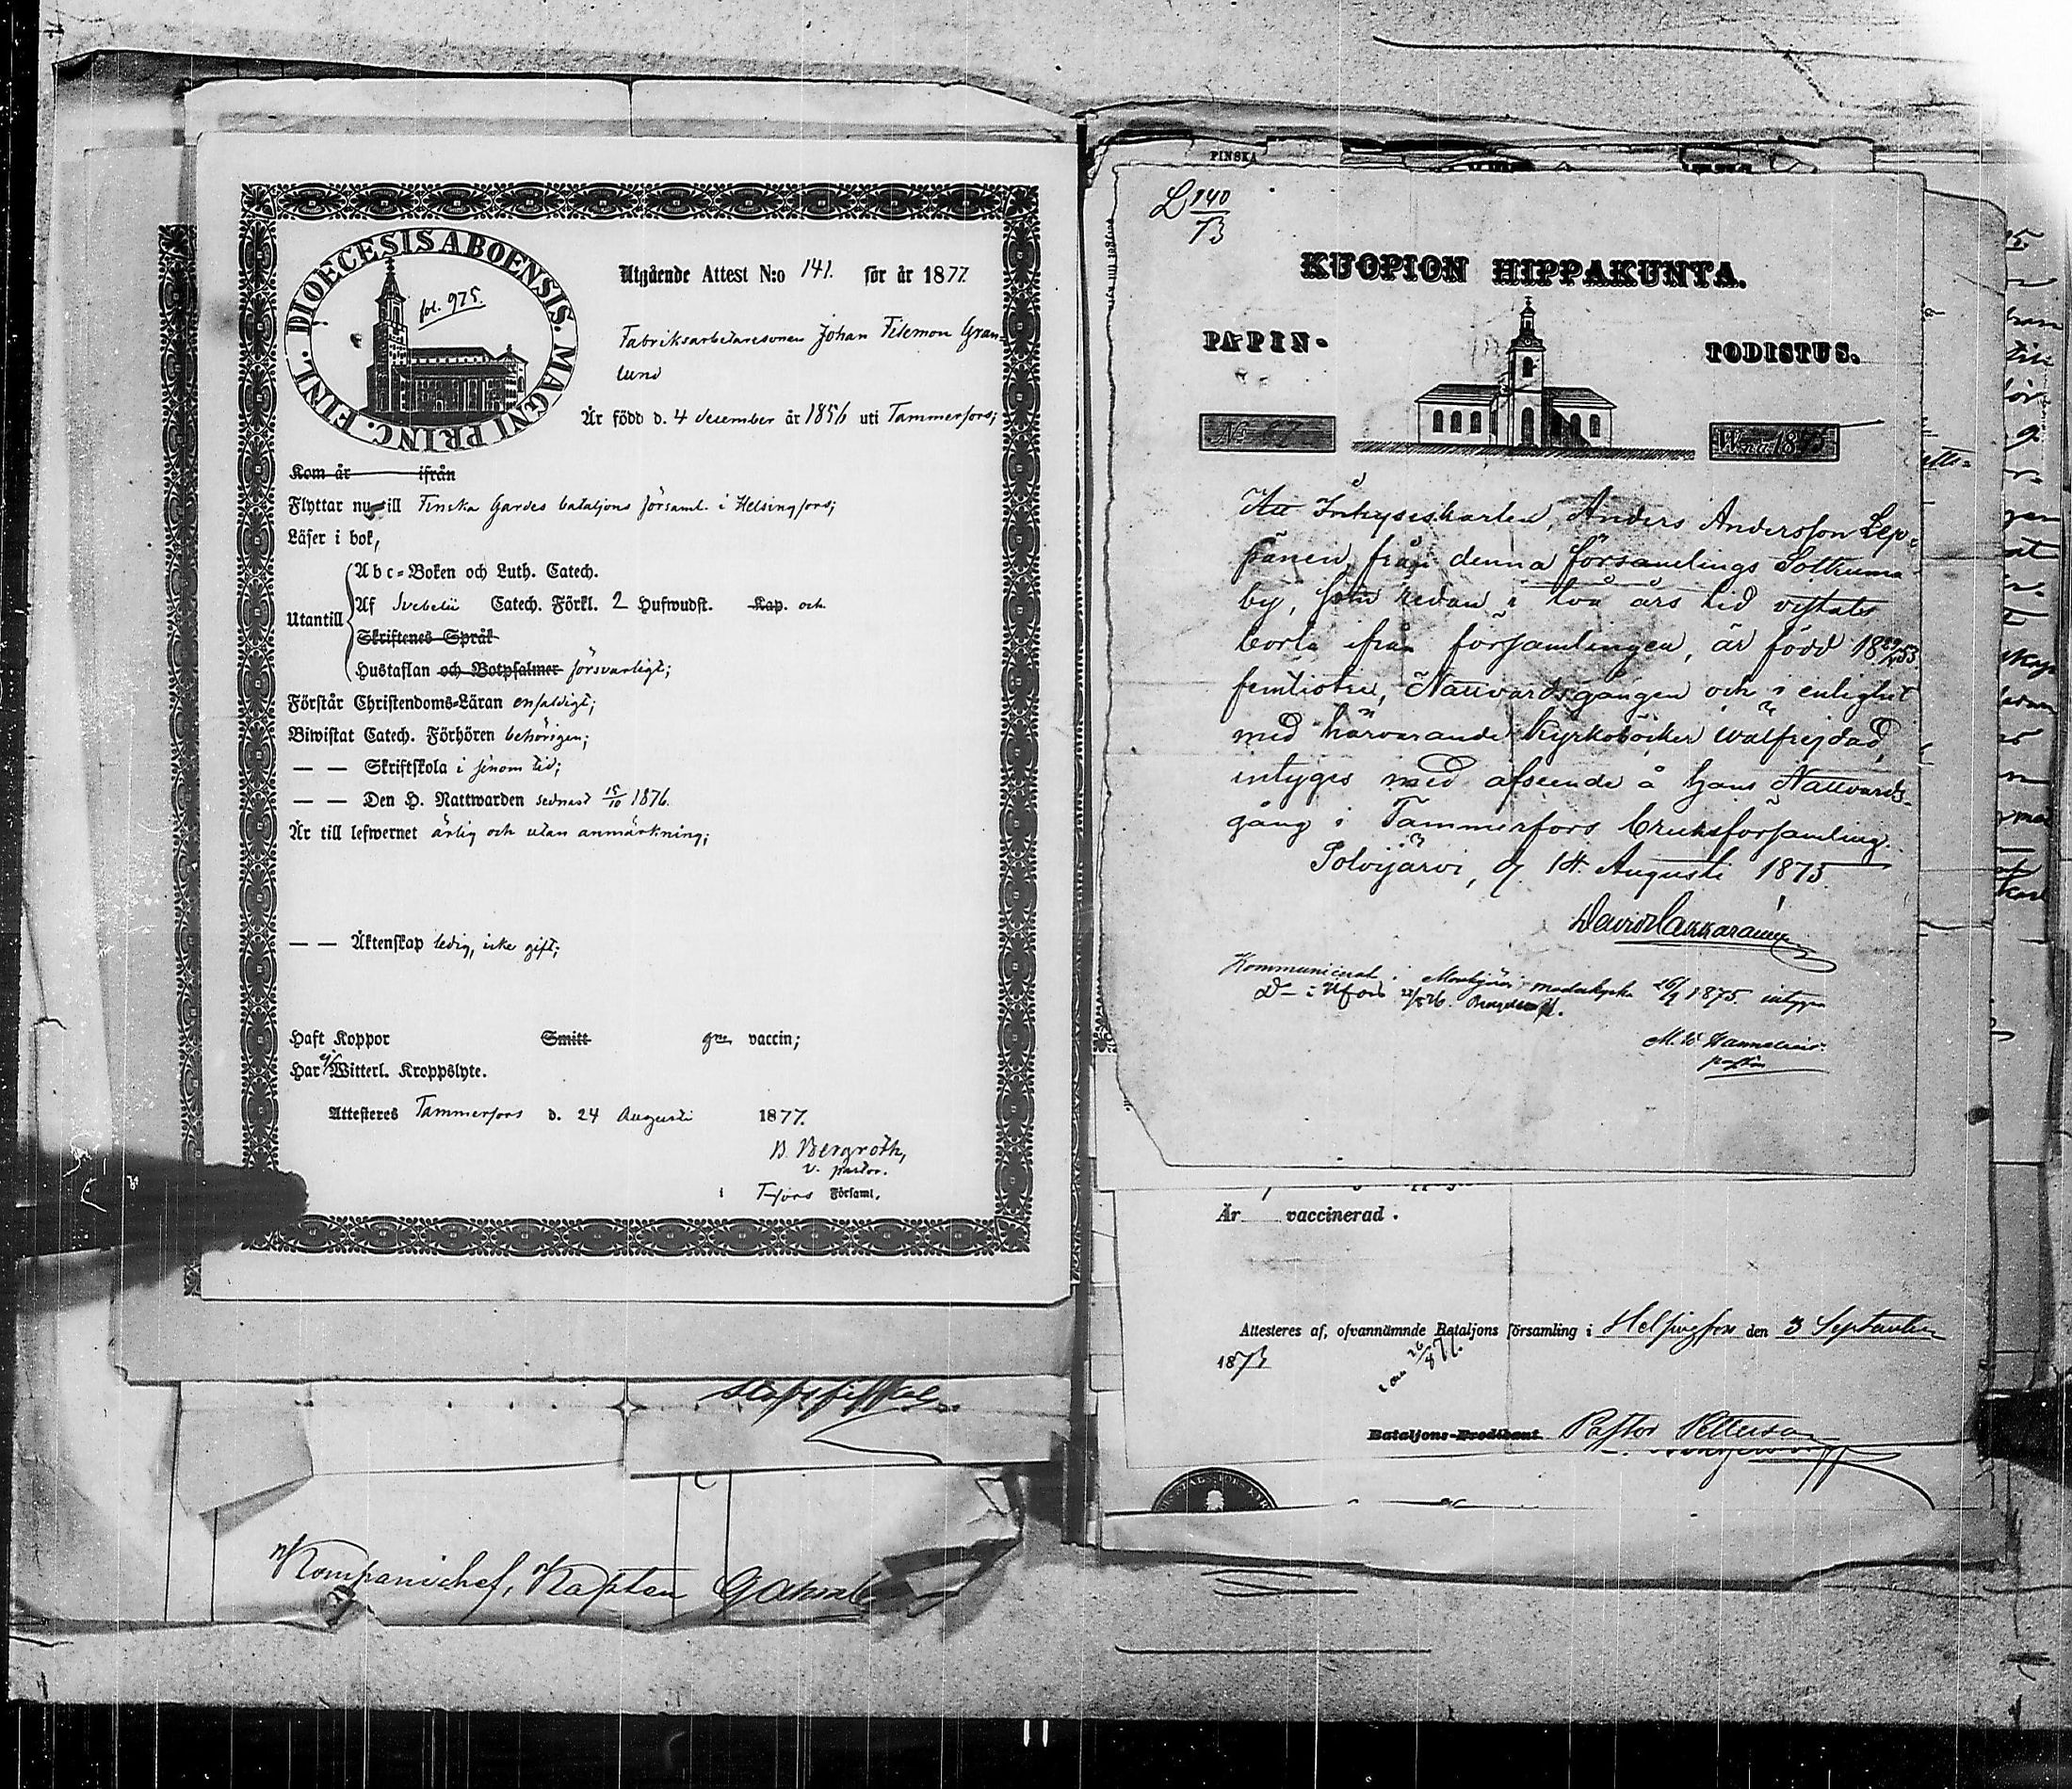 DIOECESIS ABOENSIS. MAGNI PRINC. FINL.
fol. 975.
Utgående Attest N:o 141. för år 1877.
Fabriksarbetaresonen Johan Filemon Gran-
lund
Är född d. 4 december år 1856 uti Tammerfors;
Kom år ifrån
Flyttar nu till Finska Gardes bataljons församl. i Helsingfors;
Läser i bok,
Utantill
Abc-Boken och Luth. Catech.
Af Svebelii Catech. Förkl. 2 Hufwudst. Kap. och
Skriftenes Språk
Hustaflan och Botpsalmer försvarligt;
Förstår Christendoms-Läran enfaldigt;
Biwistat Catech. Förhören behörigen;
— — Skriftskola i sinom tid;
— — Den H. Nattwarden sednast 15/10 1876.
Är till lefwernet ärlig och utan anmärkning;
— — Äktenskap ledig, icke gift;
Haft Koppor Smitt gm vaccin;
Har ej Witterl. Kroppslyte.
Attesteres Tammerfors d. 24 Augusti 1877.
B. Bergroth,
v. pastor.
i T-fors Församl.
Kompanichef, Kapten
PINSKA
L 140/73
KUOPION HIPPAKUNTA.
PAPIN- TODISTUS.
N:o 87 W:na 1875
Att Inhyseskarlen, Anders Andersson Lep-
pänen, från denna församlings Sotkuma
by, som redan i två års tid vistats
borta ifrån församlingen, är född 18 53
femtiotre, Nattvardsgången och i enlighet
med härvarande Kyrkoböcker wälfrejdad,
intygas med afseende å hans Nattvards-
gång i Tammerfors bruksförsamling.
Polvijärvi, d. 14 Augusti 1875.
Kommunicerat i moderkyrka 26/9 1875. intygar
M. W. Hannelius.
pastor
Är vaccinerad.
Attesteres af, ofvannämnde Bataljons församling i Helsingfors den 3 September
187
Bataljons-Predikant Pastor Petterson